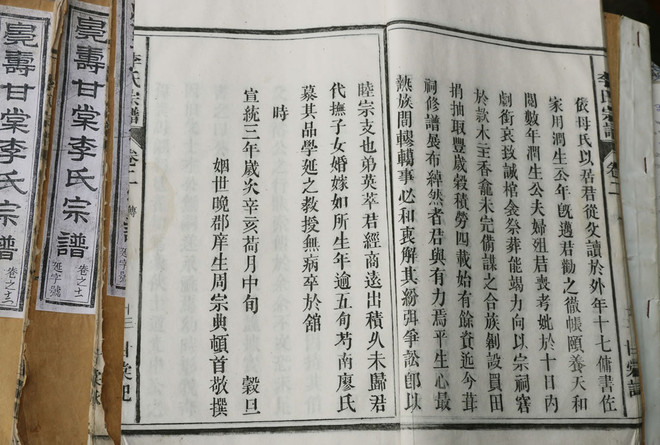 依母氏以居君從父讀於外年十七傭書佐
家用潤生公年旣邁君勸之徹帳頤養天和
閱數年潤生公夫婦殂君喪考妣於十日內
劇銜哀救誠棺衾祭葬能竭力向以宗祠窘
於款木主香龕未完備謀之合族剏設買田
捐抽取豐歲穀積勞四載始有餘資近今葺
祠修譜展布綽然者君與有力焉平生心最
熱族間轇轕事必和衷解其紛弭爭訟卽以
睦宗支也弟英萃君經商遠出積久未歸君
代撫子女婚嫁如所生年逾五旬芍南廖氏
慕其品學延之教授無病卒於舘
時
宣統三年歲次辛亥荷月中旬 穀旦
姻世晚郡庠生周宗典頓首敬撰
李氏宗譜
壽甘棠李氏宗譜
延字號
壽甘棠李氏宗譜
延字號